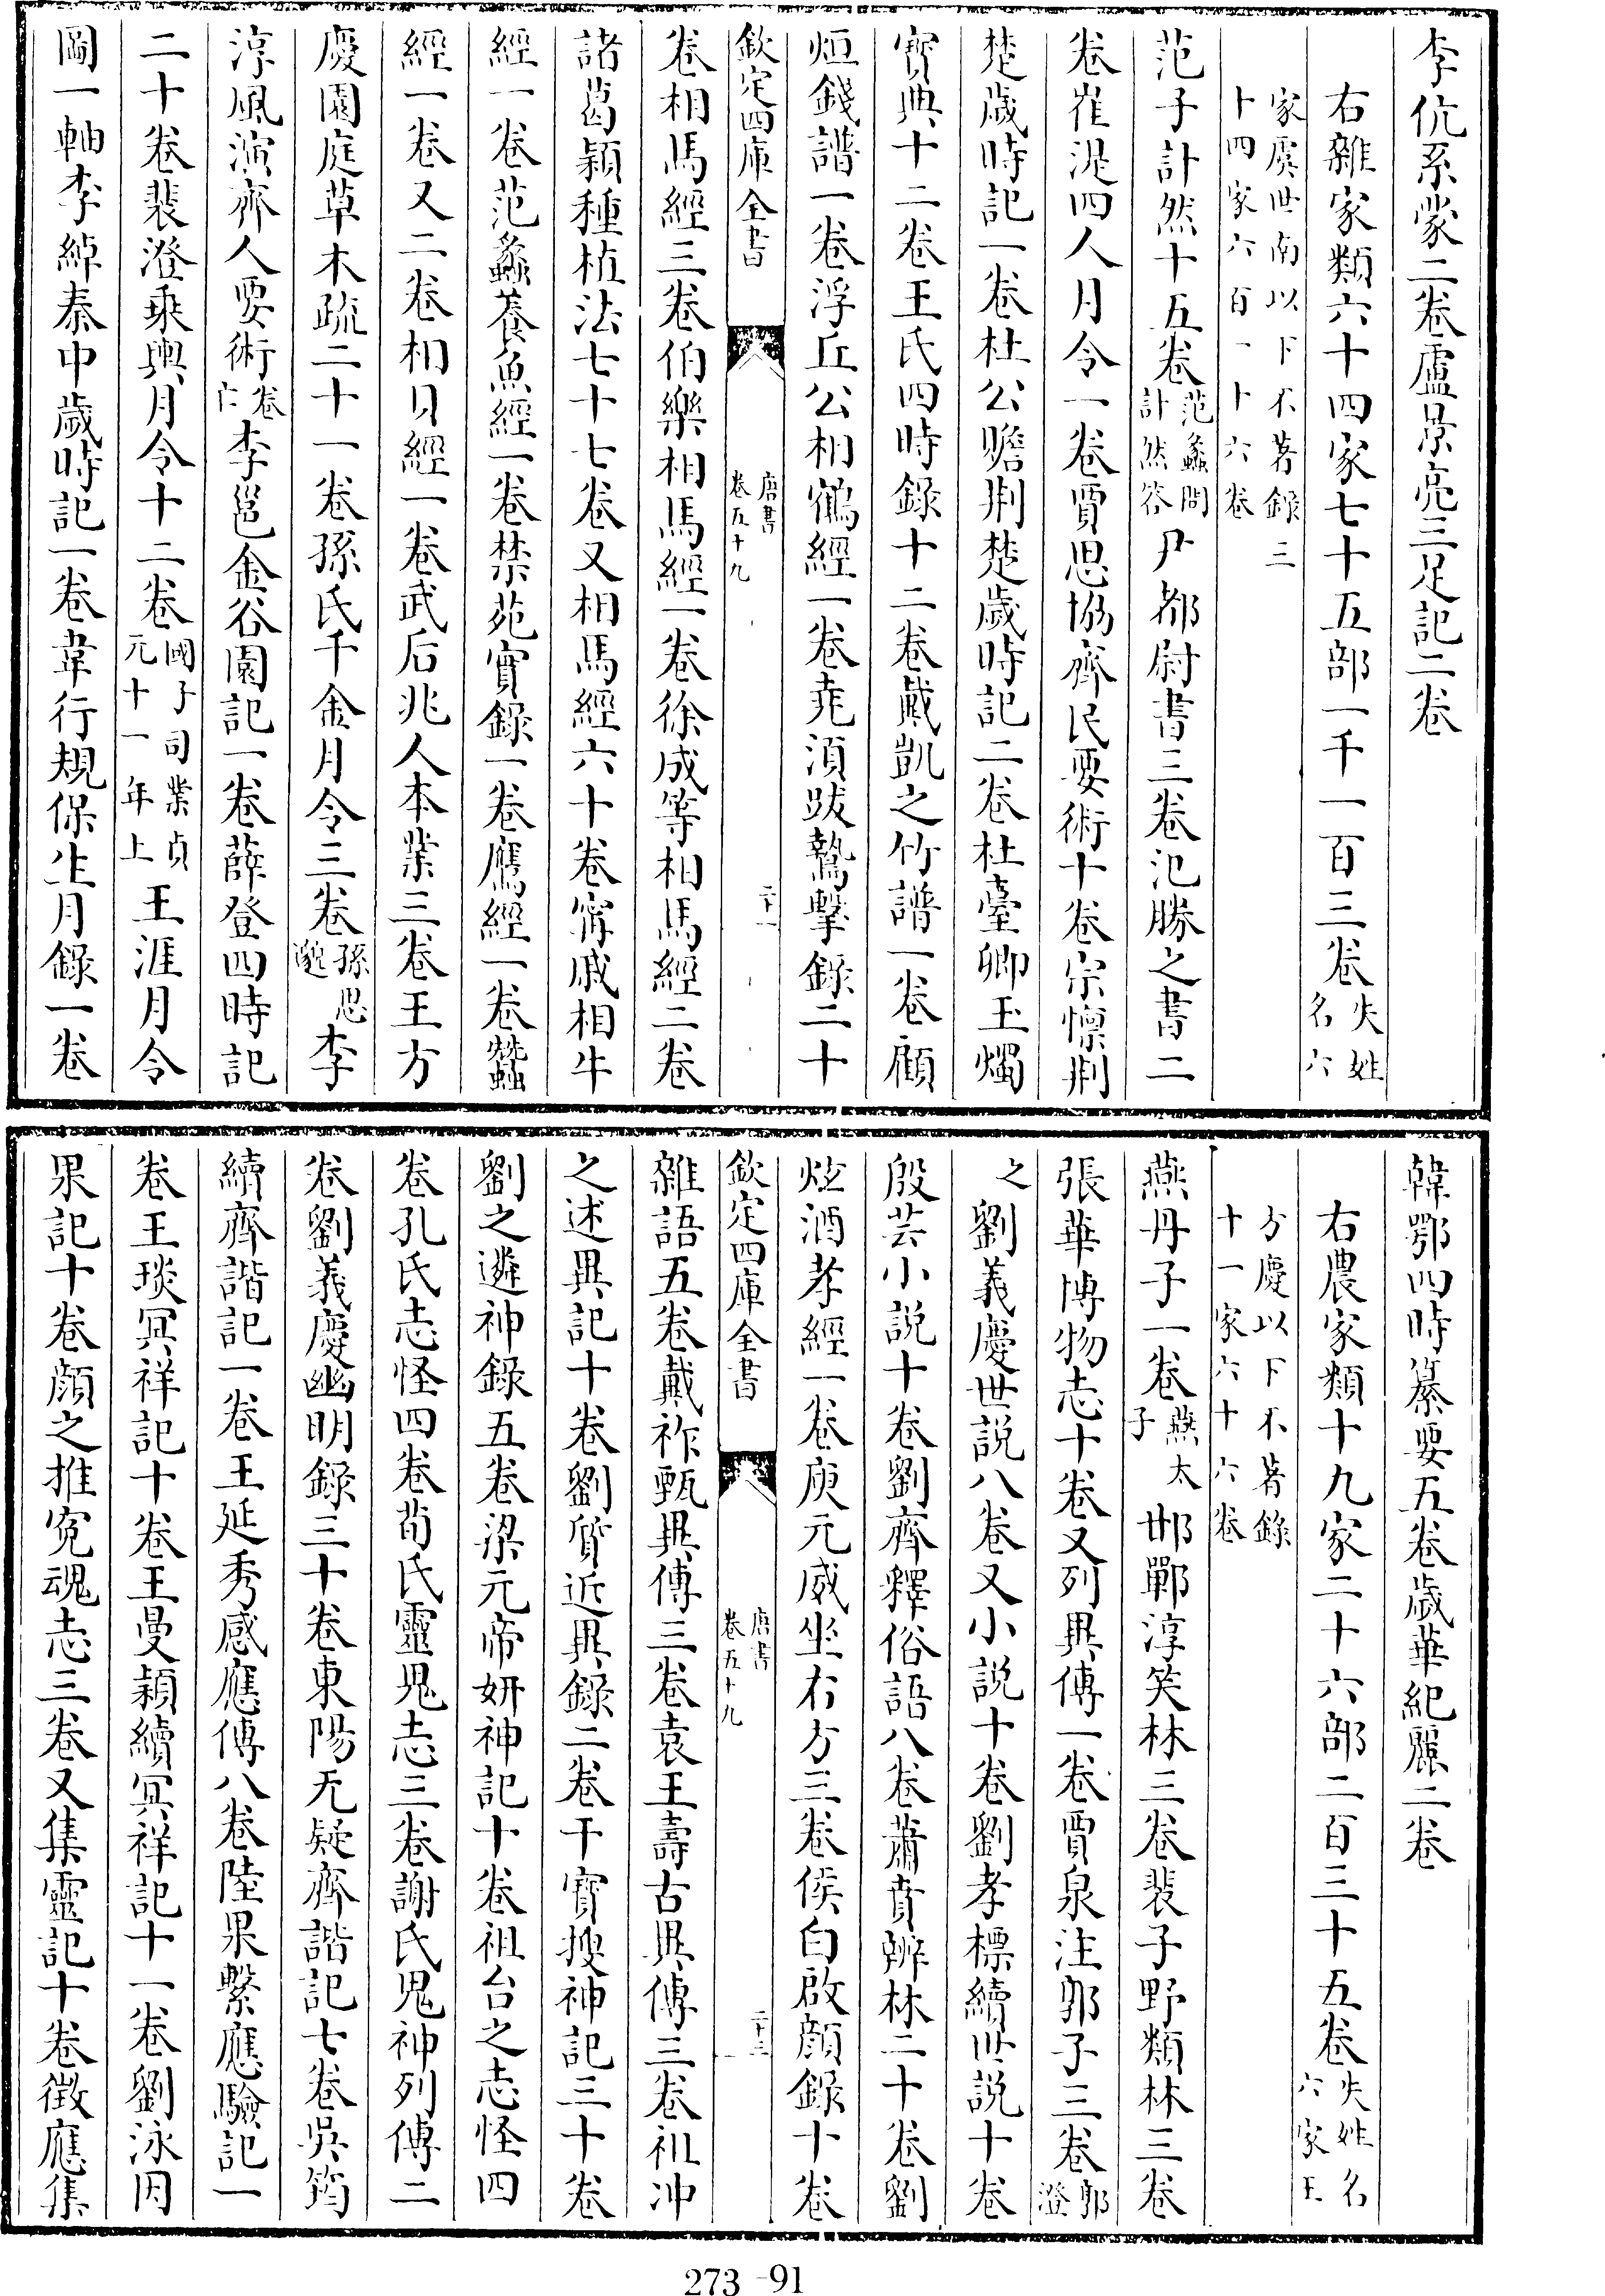 李伉系蒙二卷盧景亮三足記二卷
右雜家類六十四家七十五部一千一百三卷失姓名六
家虞世南以下不著錄三十四家六百一十六卷
范子計然十五卷范蠡問計然答尹都尉書三卷氾勝之書二
卷崔湜四人月令一卷賈思協齊民要術十卷宗懍荆
楚歲時記一卷杜公贍荆楚歲時記二卷杜臺卿玉燭
寶典十二卷王氏四時錄十二卷戴凱之竹譜一卷顧
烜錢譜一卷浮丘公相鶴經一卷堯須跋鷙擊錄二十
欽定四庫全書
唐書卷五十九
二十一
卷相馬經三卷伯樂相馬經一卷徐成等相馬經二卷
諸葛穎種植法七十七卷又相馬經六十卷甯戚相牛
經一卷范蠡養魚經一卷禁苑實錄一卷鷹經一卷蠶
經一卷又二卷相貝經一卷武后兆人本業三卷王方
慶園庭草木疏二十一卷孫氏千金月令三卷孫思邈李
淳風演齊人要術卷亡李邕金谷園記一卷薛登四時記
二十卷裴澄乘輿月令十二卷國子司業貞元十一年上王涯月令
圖一軸李綽秦中歲時記一卷韋行規保生月錄一卷
韓鄂四時纂要五卷歲華紀麗二卷
右農家類十九家二十六部二百三十五卷失姓名六家王
方慶以下不著錄十一家六十六卷
燕丹子一卷燕太子邯鄲淳笑林三卷裴子野類林三卷
張華博物志十卷又列異傳一卷賈泉注郭子三卷郭澄
之劉義慶世説八卷又小説十卷劉孝標續世説十卷
殷芸小説十卷劉齊釋俗語八卷蕭賁辨林二十卷劉
炫酒孝經一卷庾元威坐右方三卷侯白啟顔錄十卷
欽定四庫全書
唐書卷五十九
二十二
雜語五卷戴祚甄異傳三卷袁王壽古異傳三卷祖沖
之述異記十卷劉質近異錄二卷干寶搜神記三十卷
劉之遴神錄五卷梁元帝妍神記十卷祖台之志怪四
卷孔氏志怪四卷荀氏靈鬼志三卷謝氏鬼神列傳二
卷劉義慶幽明錄三十卷東陽无疑齊諧記七卷吳筠
續齊諧記一卷王延秀感應傳八卷陸果繫應驗記一
卷王琰冥祥記十卷王曼潁續冥祥記十一卷劉泳因
果記十卷顔之推寃魂志三卷又集靈記十卷徵應集
273-91